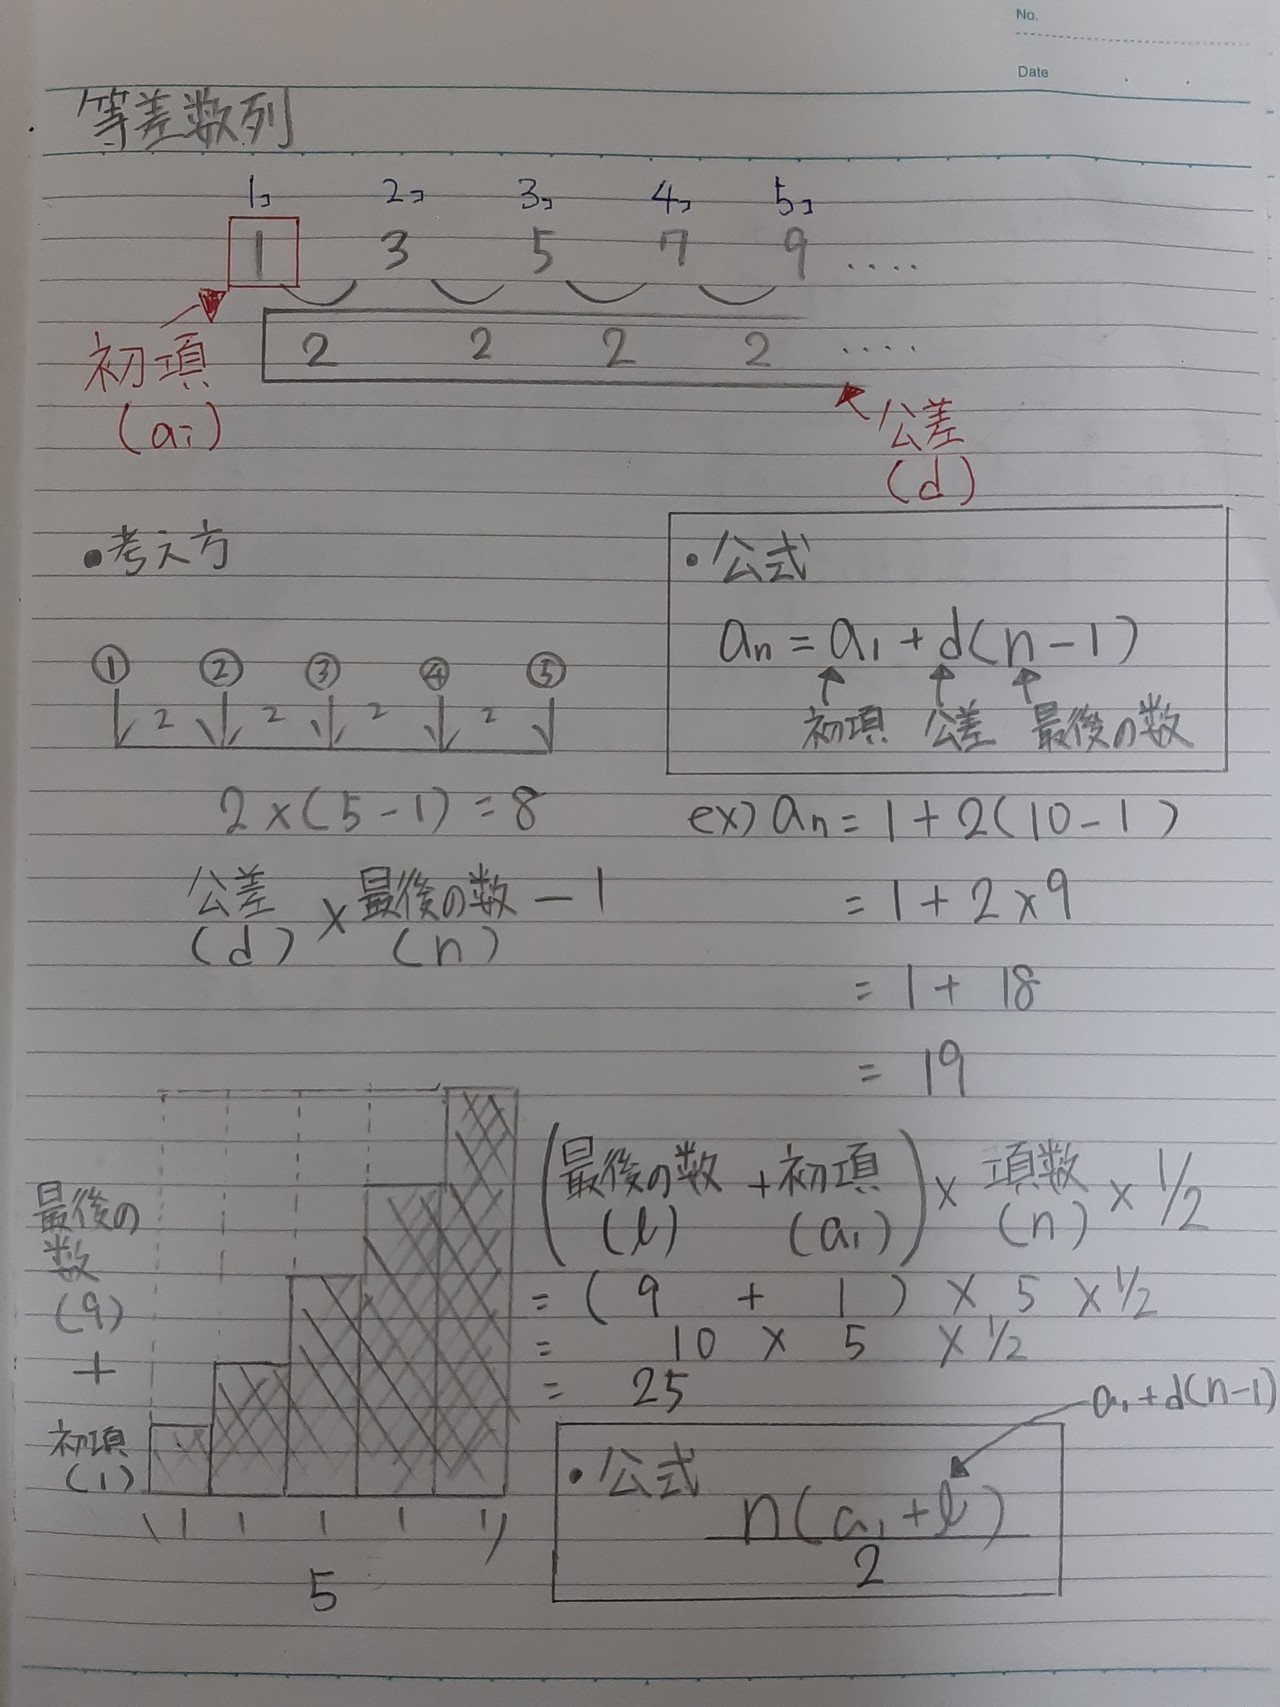 No.
Date
等差数列
1コ 2コ 3コ 4コ 5コ
1 3 5 7 9 ....
2 2 2 2 ....
初項
(a₁)
公差
(d)
●考え方
① ② ③ ④ ⑤
2 2 2 2
2×(5-1)=8
公差 × 最後の数 - 1
(d) (n)
・公式
an = a₁ + d(n-1)
初項 公差 最後の数
ex) an = 1+2(10-1)
= 1+2×9
= 1+ 18
= 19
最後の
数
(9)
+
初項
(1)
1 1 1 1 1
5
(最後の数 + 初項) × 項数 × 1/2
(l) (a₁) (n)
= ( 9 + 1 ) × 5 × 1/2
= 10 × 5 × 1/2
= 25
a₁+d(n-1)
・公式
n(a₁+l)
2